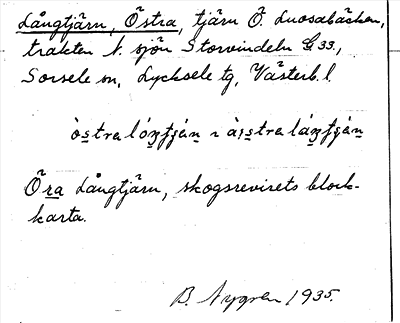 Långtjärn, Östra, tjärn Ö. Luosabäcken,
trakten N. sjön Storvindeln G 33.,
Sorsele sn, Lycksele tg, Västerb. l.
Öra Långtjärn, skogsrevirets block-
karta.
B. Nygren 1935.